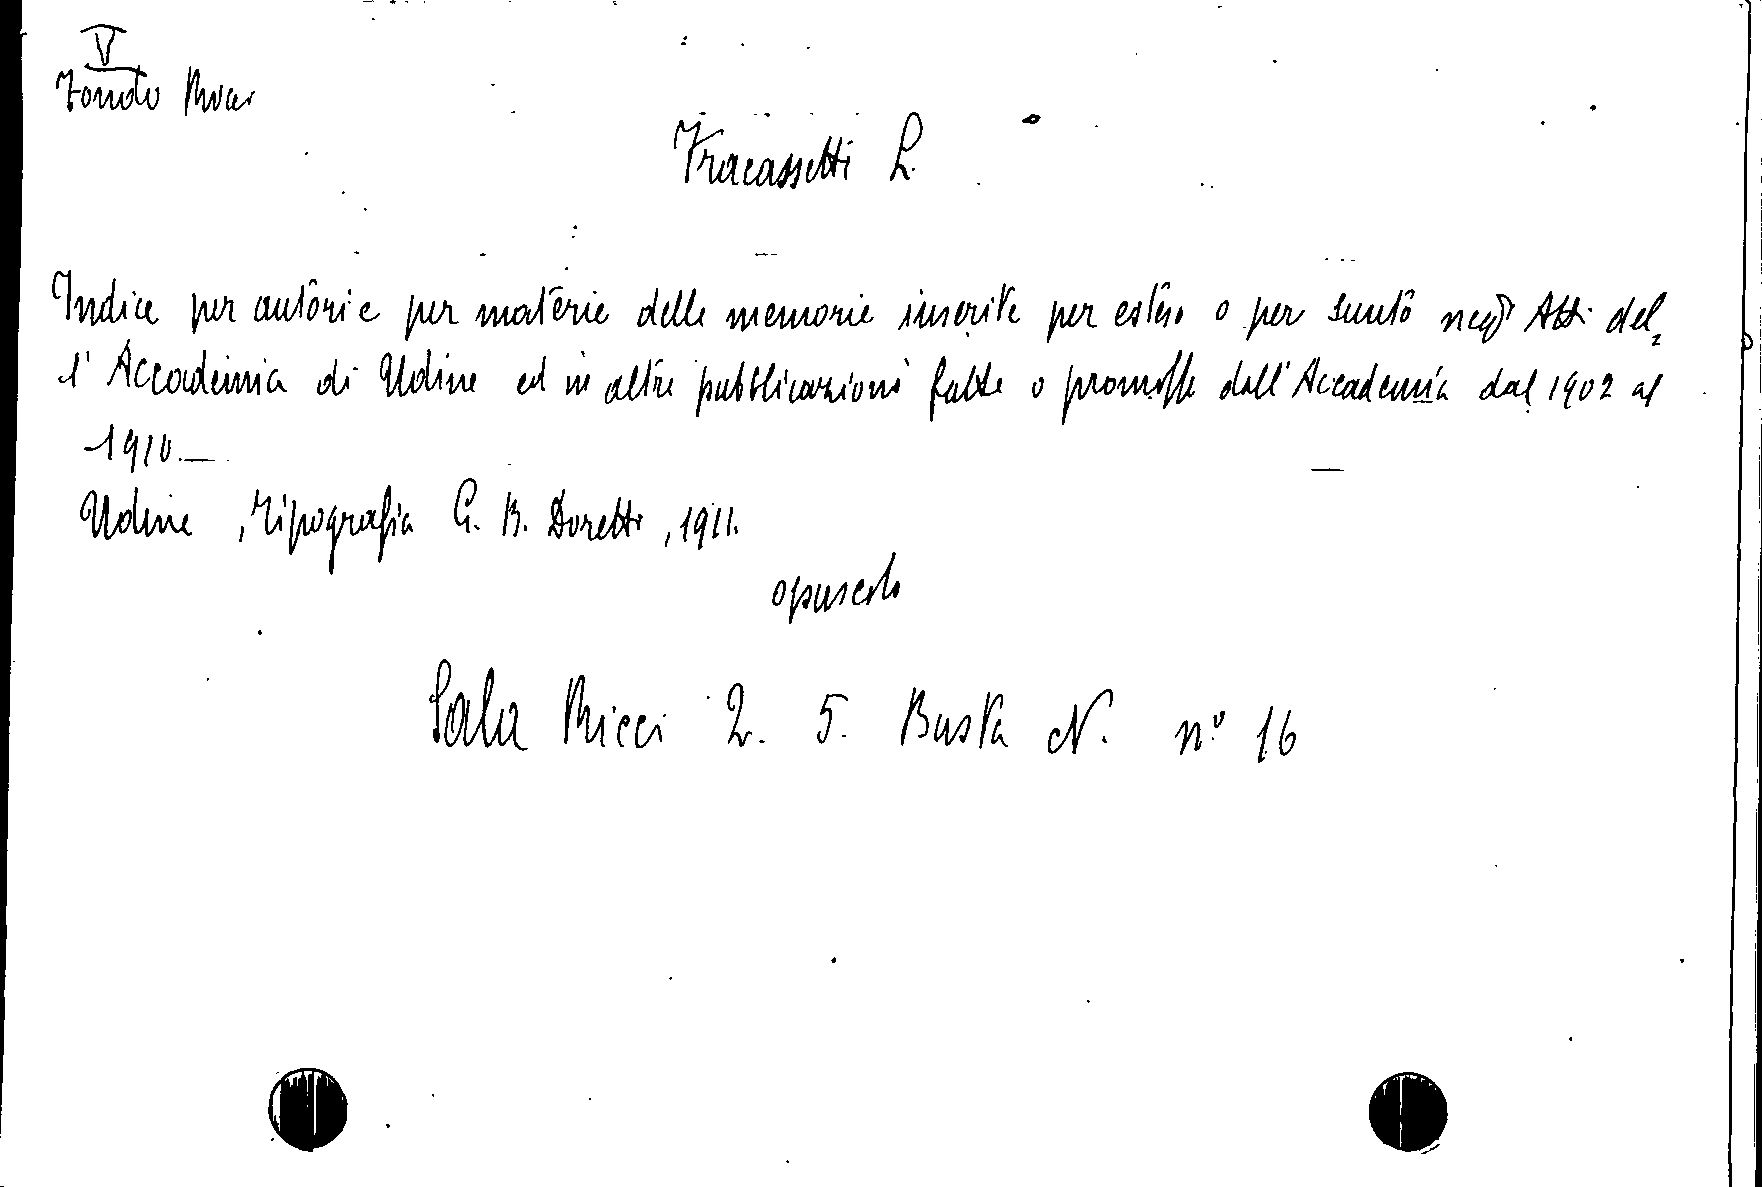 V
Fondo
Fracassetti L.
Indice per autori e per materie delle memorie inserite per esteso o per sunto negli Atti del=
l'Accademia di Udine ed in altre pubblicazioni fatte o promosse dall'Accademia dal 1902 al
1910.—
Udine, Tipografia G. B. Doretti, 1911.
opuscolo
Sala Ricci 2. 5. Busta N. nº 16